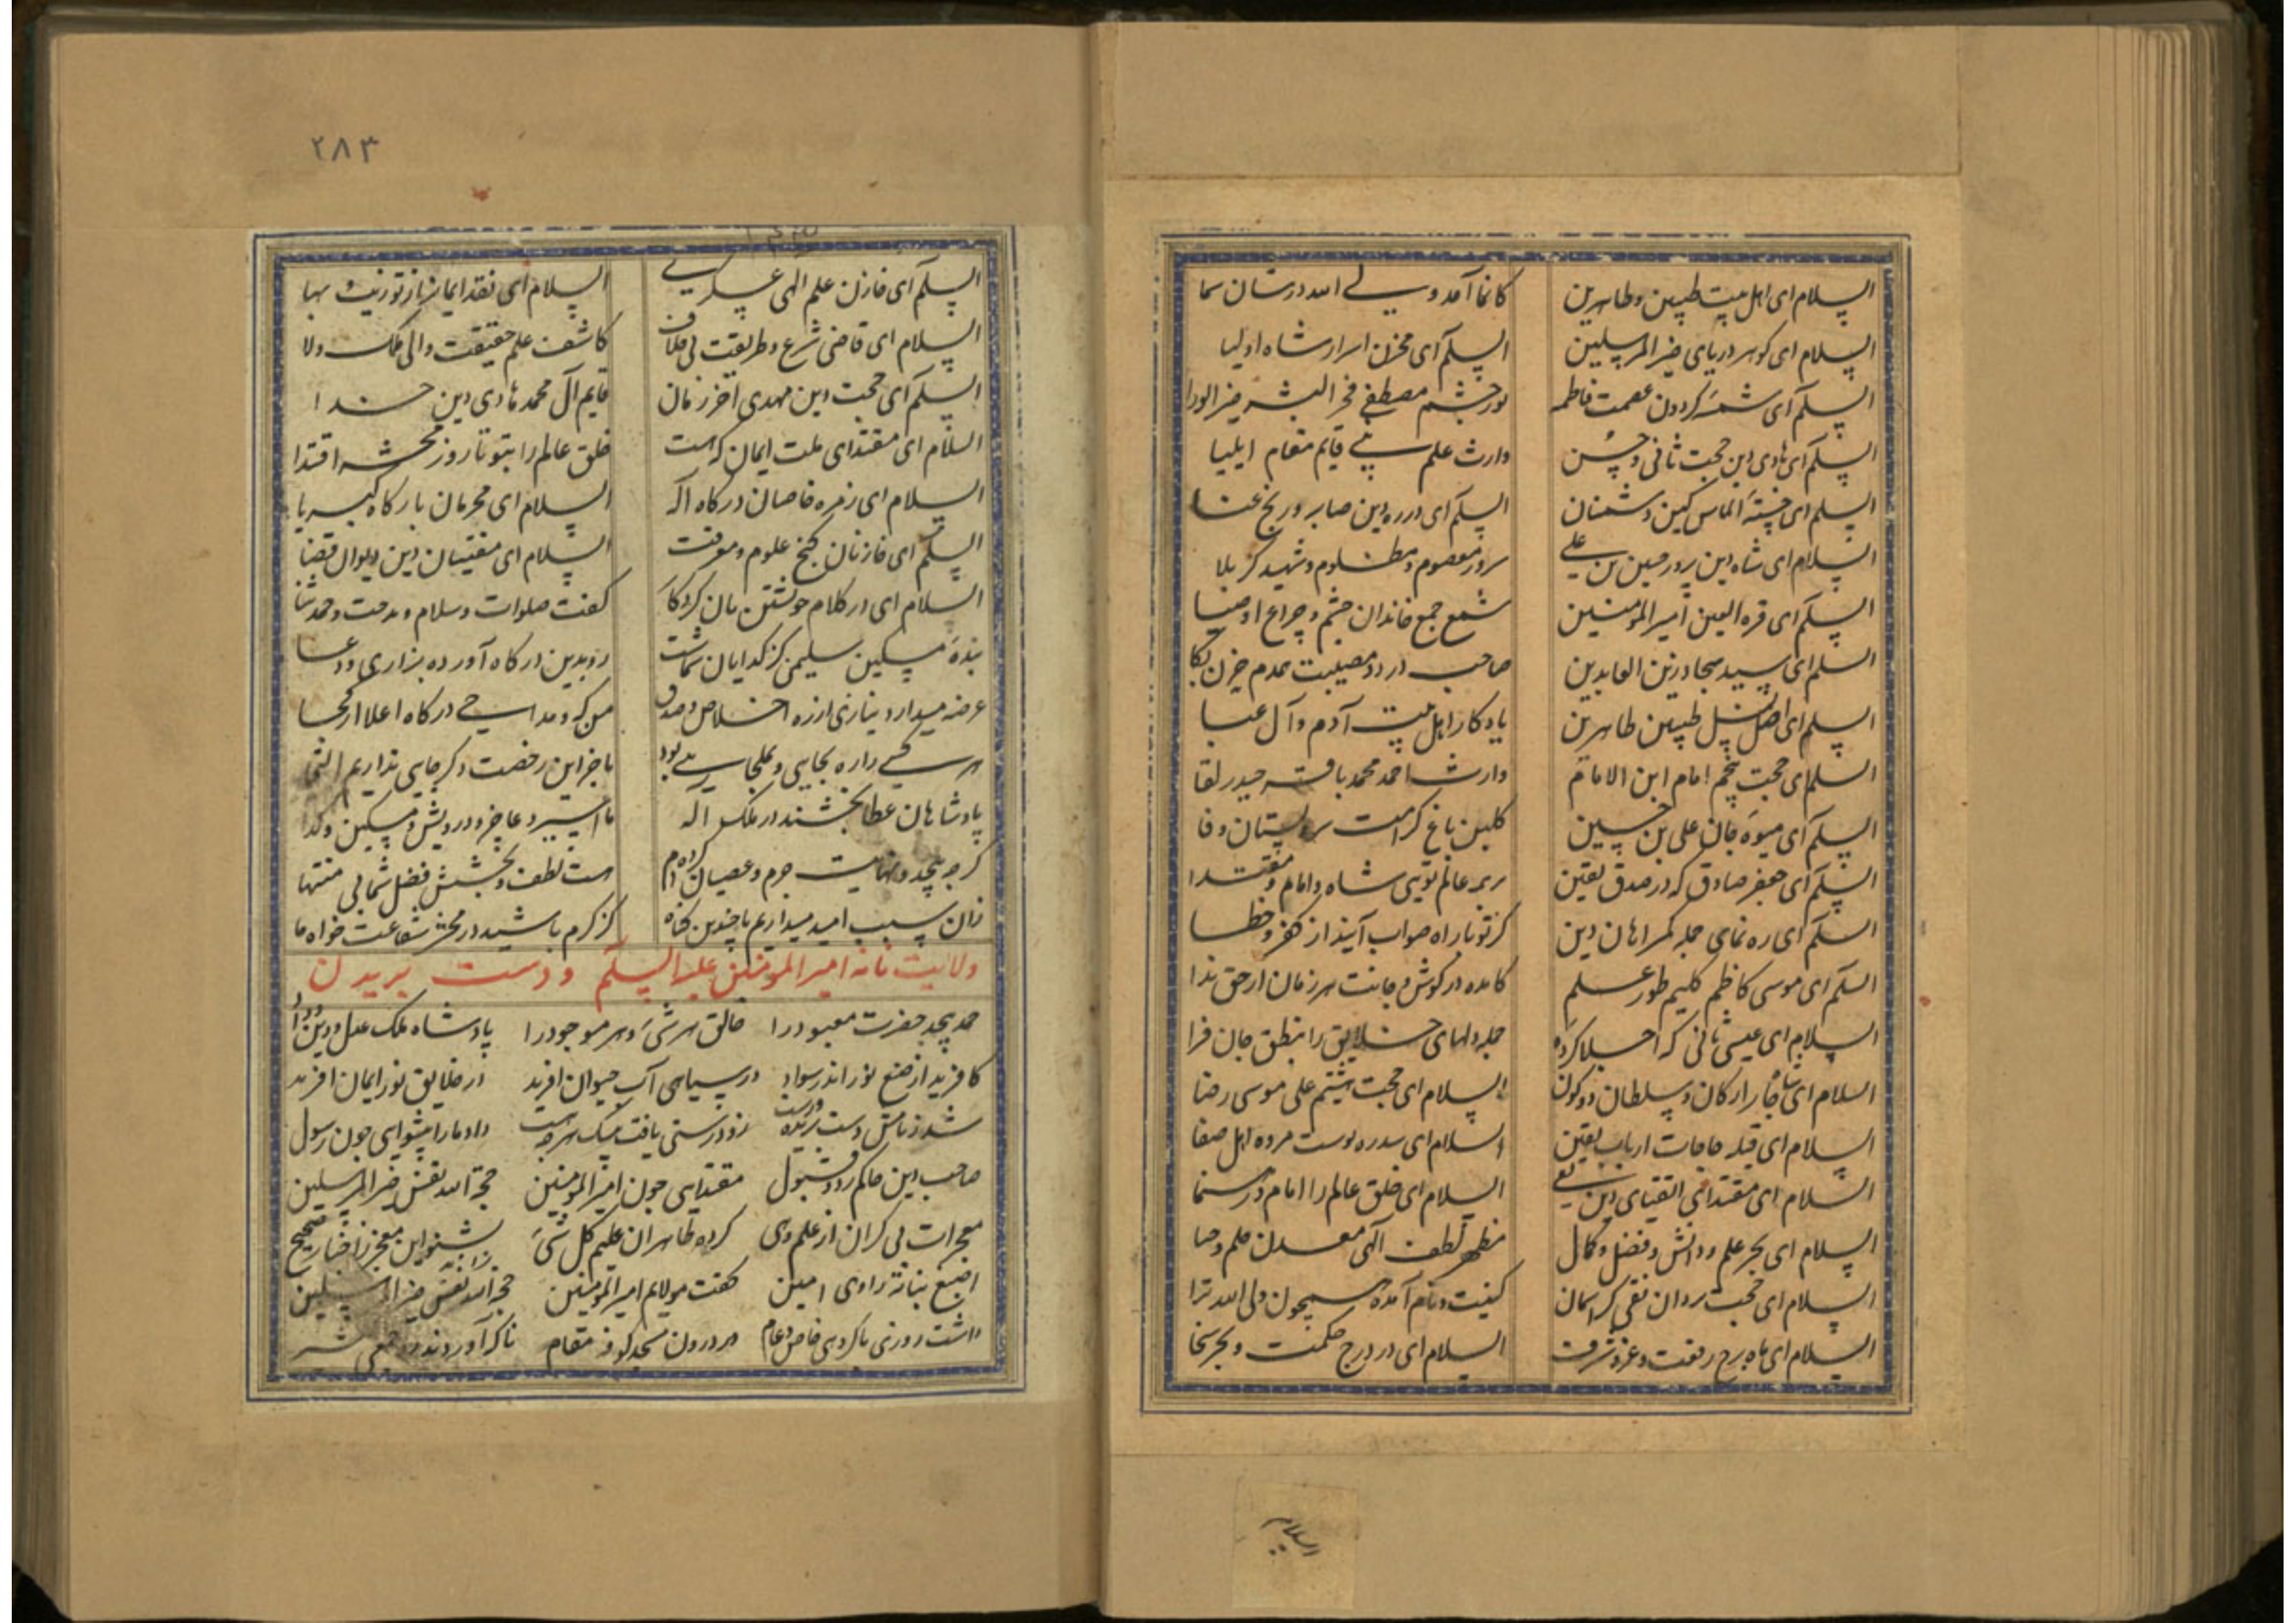 السلام ای اهل بیت طیبین و طاهرین کانما آمد ولی الله در شان سما
السلام ای گوهر دریای خیر المرسلین السلم ای مخزن اسرار شاه اولیا
السلم ای شمسهٔ کردون عصمت فاطمه نور چشم مصطفی فخر البشر خیر الورا
السلم ای هادی دین حجت ثانی حسن وارث علم نبی قایم مقام ایلیا
السلم ای خستهٔ الماس کین دشمنان السلم ای در ره دین صابر و رنج عنا
السلام ای شاه دین پرور حسین بن علی سرور معصوم و مظلوم و شهید کربلا
السلم ای قرة العین امیر المومنین شمع جمع خاندان چشم و چراغ اوصیا
السلم ای سید سجاد زین العابدین صاحب درد و مصیبت همدم حزن بکا
السلم ای اصل نسل طیبین طاهرین یادکار اهل بیت آدم و آل عبا
السلم ای حجت پنجم امام ابن الامام وارث احمد محمد باقر حیدر لقا
السلم ای میوهٔ جان علی بن حسین کلبن باغ کرامت سرو بستان وفا
السلم ای جعفر صادق که در صدق یقین بر همه عالم تویی شاه و امام و مقتدا
السلم ای ره نمای جمله کمراهان دین کز تو تا راه صواب آیند از کفر و خطا
السلم ای موسی کاظم کلیم طور علم کامده در کوش جانت هر زمان از حق ندا
السلام ای عیسی ثانی که احیا کرده جمله دلهای خلایق را بنطق جان فزا
السلام ای شاه چار ارکان و سلطان دو کون السلام ای حجت هشتم علی موسی رضا
السلام ای قبله حاجات ارباب یقین السلام ای سدره توست مروه اهل صفا
السلام ای مقتدای اتقیای دین تقی السلام ای خلق عالم را امام و رهنما
السلام ای بحر علم و دانش و فضل و کمال مظهر لطف الهی معدن حلم و حیا
السلام ای حجت یزدان نقی کز اسمان کنیت و نام آمده همچون ولی الله ترا
السلام ای ماه برج رفعت و عز و شرف السلام ای در درج حکمت و بحر سخا
السلام
۲۸۳
السلم ای خازن علم الهی عسکری السلام ای نقد ایمان از تو زینت بها
السلام ای قاضی شرع و طریقت بی خلاف کاشف علم حقیقت والی ملک ولا
السلم ای حجت دین مهدی آخر زمان قایم آل محمد هادی دین خدا
السلام ای مقتدای ملت ایمان که هست خلق عالم را بتو تا روز محشر اقتدا
السلام ای زمره خاصان درکاه اله السلام ای محرمان بارکاه کبریا
السلم ای خازنان کنج علوم و معرفت السلام ای مفتیان دین دیوان قضا
السلام ای در کلام خویشتن تان کردکار کفت صلوات و سلام و مدحت و حمد ثنا
بندهٔ مسکین سلیمی کز کدایان شماست رو بدین درکاه آورده بزاری و دعا
عرضه میدارد نیازی از ره اخلاص و صدق من که و مداحی درکاه اعلا از کجا
هر کسی دارد بجایی و ملجایی بود ما جز این رخصت دکر جایی نداریم التجا
پادشاهان عطا بخشند در ملک اله ما اسیر و عاجز و درویش و مسکین و کدا
کرچه بیحد و نهایت جرم و عصیان کرده ام هست لطف و بخشش فضل شما بی منتها
زان سبب امید میداریم با چندین کناه کز کرم باشید در محشر شفاعت خواه ما
ولایت نامه امیر المومنین علیه السلم و دست بریدن
حمد بیحد حضرت معبود را خالق هر شئ و هر موجود را پادشاه ملک عدل و دین و داد
کافرید از صنع نور اندر سواد در سیاهی آب حیوان افرید در خلایق نور ایمان افرید
شد ز نامش دست ببریده درست زو درستی یافت بیشک هر چه هست داد ما را پیشوایی چون رسول
صاحب این حاکم رد و قبول مقتدایی چون امیر المومنین حجة الله نفس خیر المرسلین
معجزات بی کران از علم وی کرده ظاهر آن علیم کل شئ بشنو این معجز ز اخبار صحیح
اصبغ بناته راوی امین کفت مولایم امیر المومنین حجة الله نفس خیر المرسلین
داشت روزی با کروهی خاص و عام در درون مسجد کوفه مقام ناکه آوردند